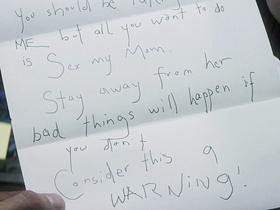 you should be
ME but all you want to do
is Sex my Mom.
Stay away from her
bad things will happen if
you don't
Consider this a
WARNiNG!